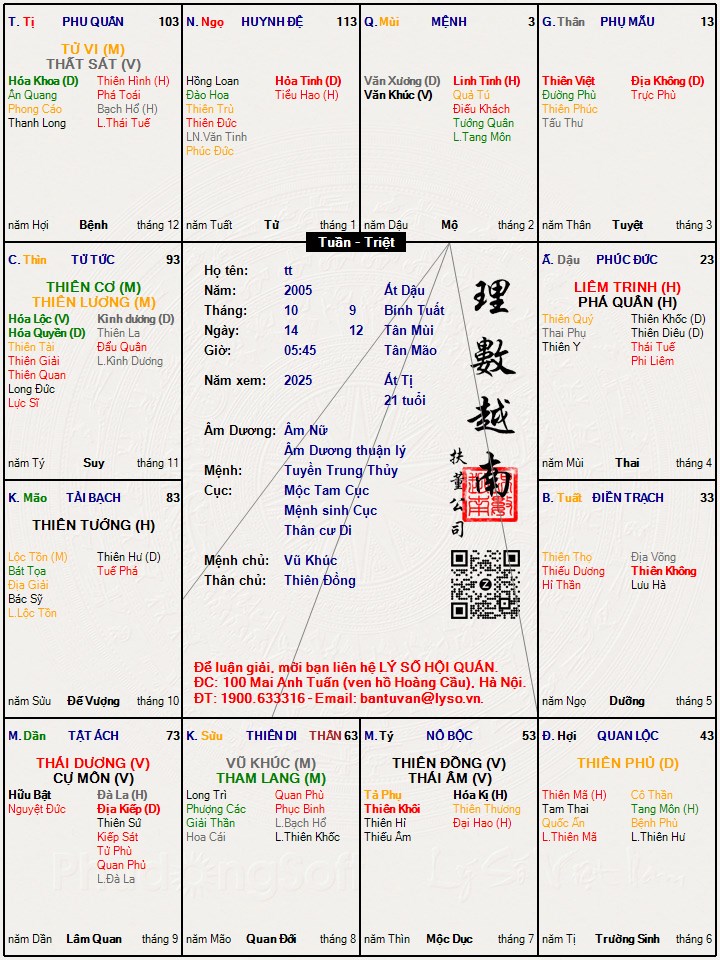 T. Tị PHU QUÂN 103
TỬ VI (M)
THẤT SÁT (V)
Hóa Khoa (D) Thiên Hình (H)
Ân Quang Phá Toái
Phong Cáo Bạch Hổ (H)
Thanh Long L.Thái Tuế
năm Hợi Bệnh tháng 12
N. Ngọ HUYNH ĐỆ 113
Hồng Loan Hỏa Tinh (D)
Đào Hoa Tiểu Hao (H)
Thiên Trù
Thiên Đức
LN.Văn Tinh
Phúc Đức
năm Tuất Tử tháng 1
Q. Mùi MỆNH 3
Văn Xương (D) Linh Tinh (H)
Văn Khúc (V) Quả Tú
Điếu Khách
Tướng Quân
L.Tang Môn
năm Dậu Mộ tháng 2
G. Thân PHỤ MẪU 13
Thiên Việt Địa Không (D)
Đường Phù Trực Phù
Thiên Phúc
Tấu Thư
năm Thân Tuyệt tháng 3
Tuần - Triệt
C. Thìn TỬ TỨC 93
THIÊN CƠ (M)
THIÊN LƯƠNG (M)
Hóa Lộc (V) Kình dương (D)
Hóa Quyền (D) Thiên La
Thiên Tài Đẩu Quân
Thiên Giải L.Kình Dương
Thiên Quan
Long Đức
Lực Sĩ
năm Tý Suy tháng 11
Họ tên: tt
Năm: 2005 Ất Dậu
Tháng: 10 9 Bính Tuất
Ngày: 14 12 Tân Mùi
Giờ: 05:45 Tân Mão
Năm xem: 2025 Ất Tị
21 tuổi
Âm Dương: Âm Nữ
Âm Dương thuận lý
Mệnh: Tuyền Trung Thủy
Cục: Mộc Tam Cục
Mệnh sinh Cục
Thân cư Di
Mệnh chủ: Vũ Khúc
Thân chủ: Thiên Đồng
理數越南
扶董公司
Để luận giải, mời bạn liên hệ LÝ SỐ HỘI QUÁN.
ĐC: 100 Mai Anh Tuấn (ven hồ Hoàng Cầu), Hà Nội.
ĐT: 1900.633316 - Email: bantuvan@lyso.vn.
Ấ. Dậu PHÚC ĐỨC 23
LIÊM TRINH (H)
PHÁ QUÂN (H)
Thiên Quý Thiên Khốc (D)
Thai Phụ Thiên Diêu (D)
Thiên Y Thái Tuế
Phi Liêm
năm Mùi Thai tháng 4
K. Mão TÀI BẠCH 83
THIÊN TƯỚNG (H)
Lộc Tồn (M) Thiên Hư (D)
Bát Tọa Tuế Phá
Địa Giải
Bác Sỹ
L.Lộc Tồn
năm Sửu Đế Vượng tháng 10
B. Tuất ĐIỀN TRẠCH 33
Thiên Thọ Địa Võng
Thiếu Dương Thiên Không
Hỉ Thần Lưu Hà
năm Ngọ Dưỡng tháng 5
M. Dần TẬT ÁCH 73
THÁI DƯƠNG (V)
CỰ MÔN (V)
Hữu Bật Đà La (H)
Nguyệt Đức Địa Kiếp (D)
Thiên Sứ
Kiếp Sát
Tử Phù
Quan Phủ
L.Đà La
năm Dần Lâm Quan tháng 9
K. Sửu THIÊN DI THÂN 63
VŨ KHÚC (M)
THAM LANG (M)
Long Trì Quan Phù
Phượng Các Phục Binh
Giải Thần L.Bạch Hổ
Hoa Cái L.Thiên Khốc
năm Mão Quan Đới tháng 8
M. Tý NÔ BỘC 53
THIÊN ĐỒNG (V)
THÁI ÂM (V)
Tả Phụ Hóa Kị (H)
Thiên Khôi Thiên Thương
Thiên Hỉ Đại Hao (H)
Thiếu Âm
năm Thìn Mộc Dục tháng 7
Đ. Hợi QUAN LỘC 43
THIÊN PHỦ (D)
Thiên Mã (H) Cô Thần
Tam Thai Tang Môn (H)
Quốc Ấn Bệnh Phù
L.Thiên Mã L.Thiên Hư
năm Tị Trường Sinh tháng 6